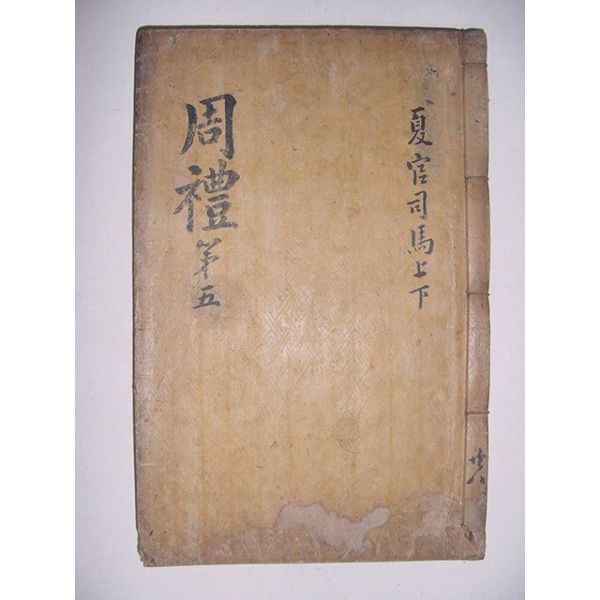 周禮 第五
夏官司馬上下